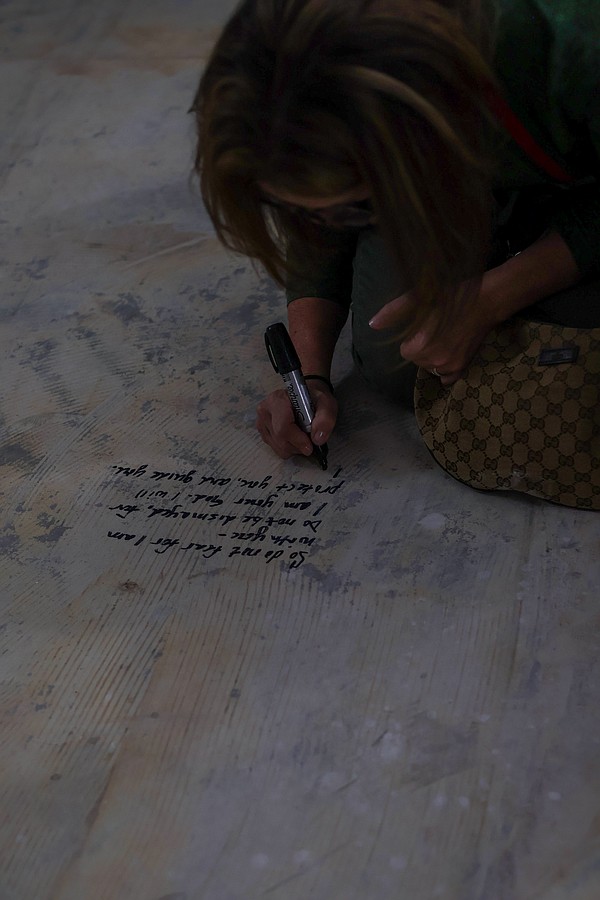 So do not fear for I am
with you –
Do not be dismayed, for
I am your God. I will
protect you, and guide you.
I
Sharpie